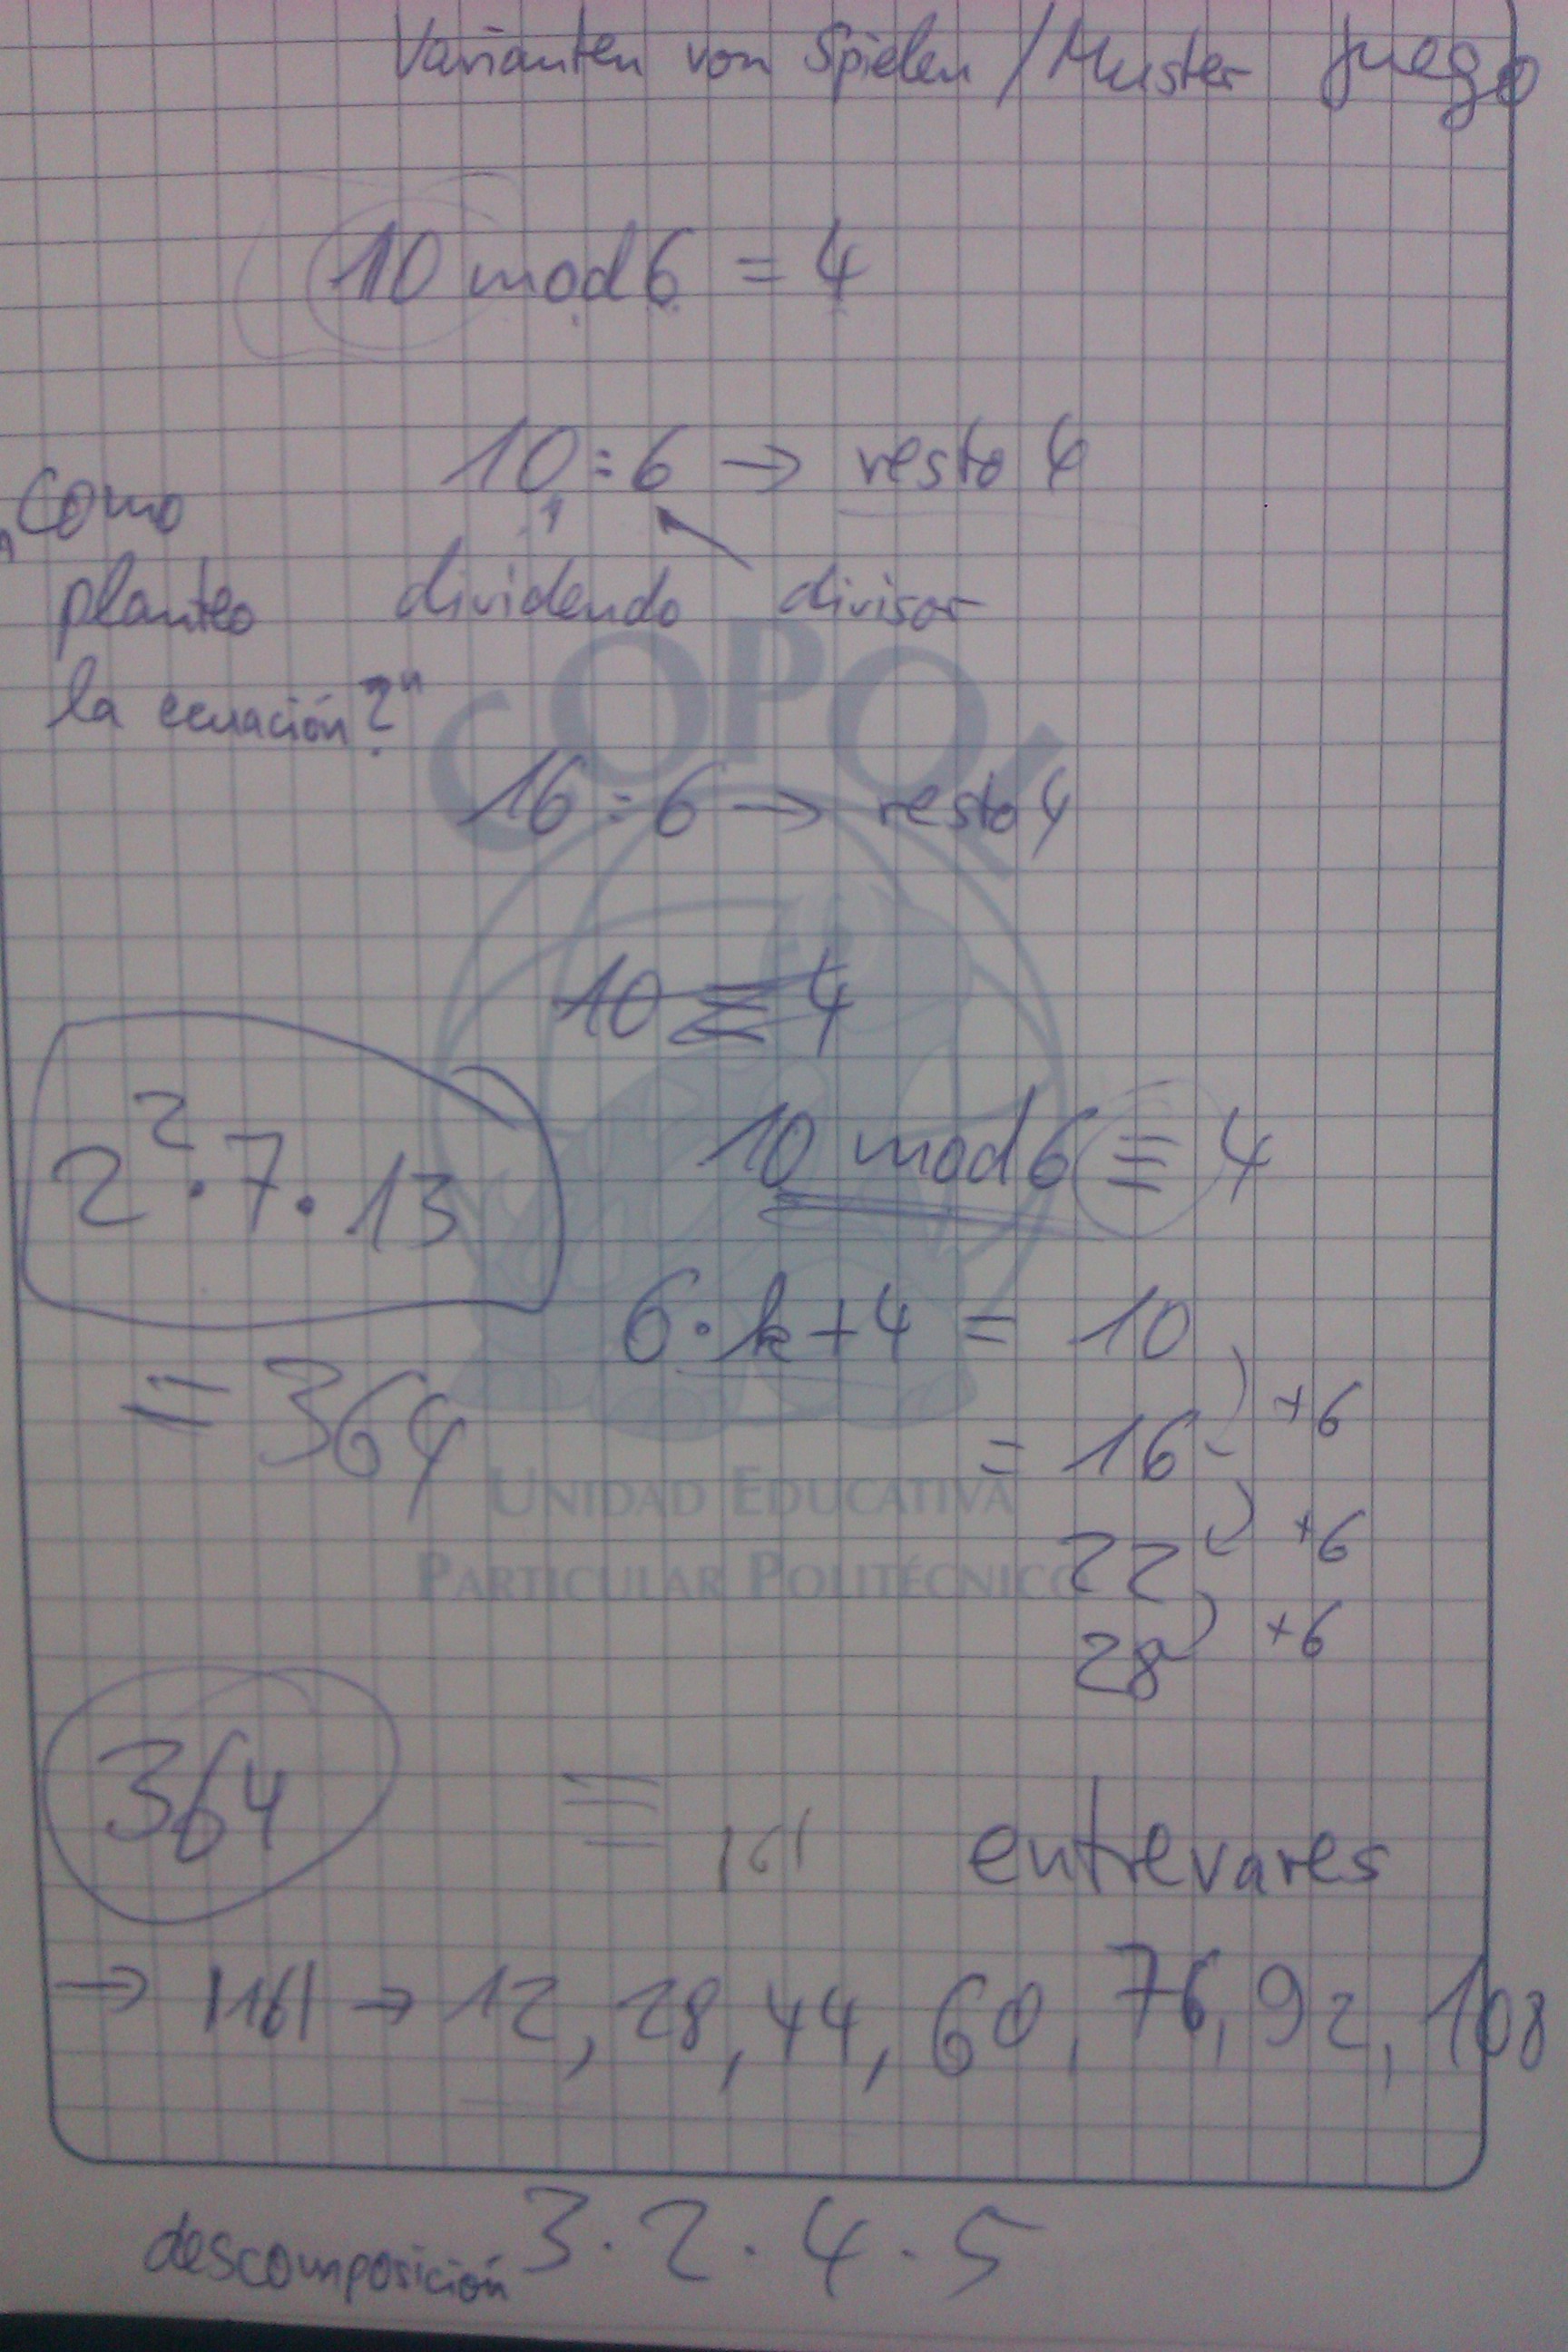 Varianten von Spielen / Muster juego
10 mod 6 = 4
10 : 6 → resto 4
"Como
planteo
la ecuación?"
dividendo divisor
COPOL
16 : 6 → resto 4
10 ≡ 4
2² · 7 · 13
= 364
10 mod 6 ≡ 4
6 · k + 4 = 10
= 16 +6
22 +6
28 +6
UNIDAD EDUCATIVA
PARTICULAR POLITÉCNICO
364 ≡ 161 entrevares
→ |161 → 12, 28, 44, 60, 76, 92, 108
descomposición 3 · 2 · 4 · 5